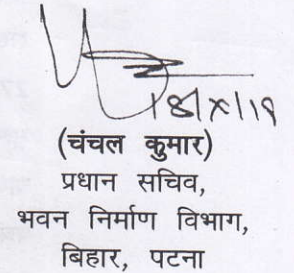 18/X/19
(चंचल कुमार)
प्रधान सचिव,
भवन निर्माण विभाग,
बिहार, पटना